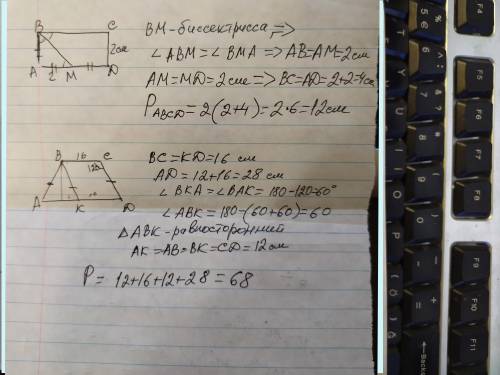 B C
2см
A 2 M D
BM - биссектрисса, =>
∠ABM = ∠BMA => AB = AM = 2 см
AM = MD = 2 см => BC = AD = 2+2 = 4 см
P ABCD = 2(2+4) = 2·6 = 12 см
B 16 C
120
A K D
BC = KD = 16 см
AD = 12+16 = 28 см
∠BKA = ∠BAK = 180-120=60°
∠ABK = 180-(60+60) = 60
△ABK - равносторонний
AK = AB = BK = CD = 12 см
P = 12+16+12+28 = 68
F4
F5
F6
F7
F8
F9
F10
F11
Backs